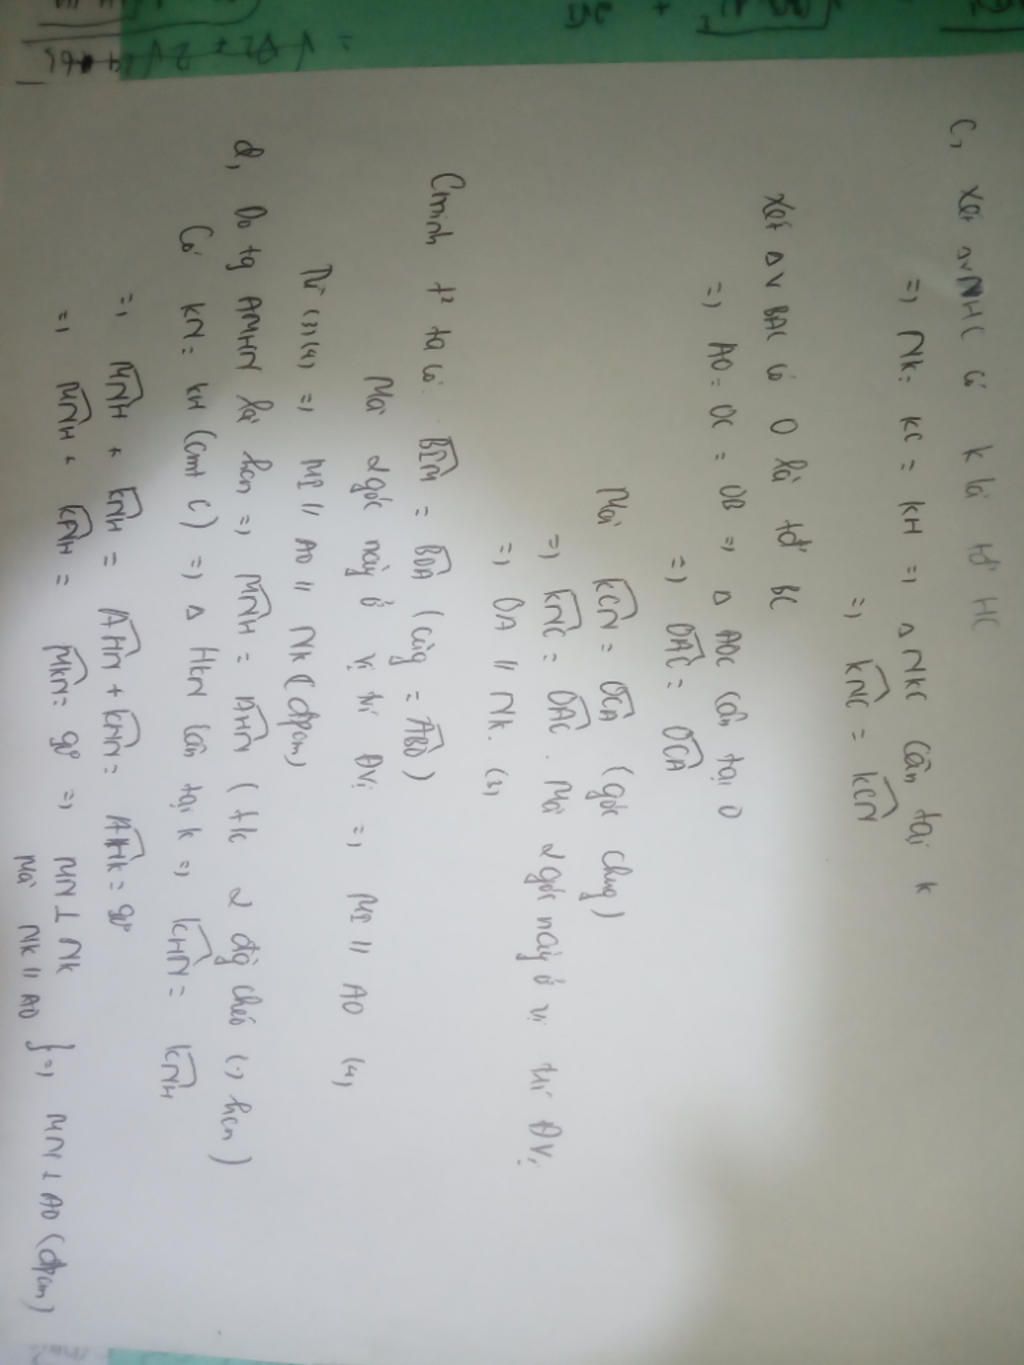 C, Xét ΔvNHC có K là tđ HC
=> NK = KC = KH => Δ NKC cân tại K
=> KNC = KCN
Xét Δv BAC có O là tđ BC
=> AO = OC = OB => Δ AOC cân tại O
=> OAC = OCA
Mà KCN = OCA (góc chung)
=> KNC = OAC. Mà 2 góc này ở vị trí ĐVị
=> OA // NK. (3)
Cminh t² ta có: BIM = BOA (cùng = ABO)
Mà 2 góc này ở vị trí ĐVị => MI // AO (4)
Từ (3)(4) => MI // AO // NK (đpcm)
d, Do tg AMHN là hcn => MNH = AHN (t/c 2 đg chéo (.) hcn)
Có KN = KH (cmt c) => Δ HKN cân tại K => KHN = KNH
=> MNH + KNH = AHN + KHN = AHK = 90°
=> MNH + KNH = MKN = 90° => MN ⊥ NK
Mà NK // AO } => MN ⊥ AO (đpcm)